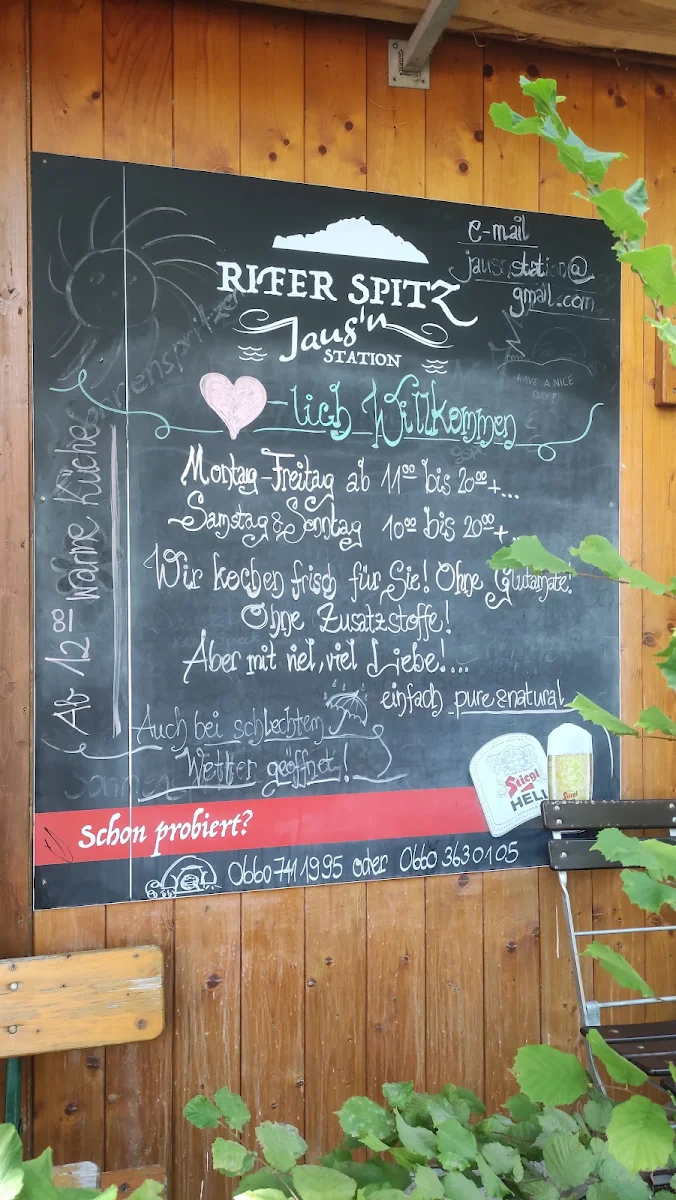 e-mail
jausnstation@
gmail.com
RIFER SPITZ
Jaus'n
STATION
HAVE A NICE
DAY!
-lich Willkommen
Montag-Freitag ab 11⁰⁰ bis 20⁰⁰+...
Samstag & Sonntag 10⁰⁰ bis 20⁰⁰+
Wir kochen frisch für Sie! Ohne Glutamate!
Ohne Zusatzstoffe!
Aber mit viel, viel Liebe!...
einfach pure & natural
Ab 12⁰⁰ warme Küche
Auch bei schlechtem
Wetter geöffnet!
Stiegl
HELL
Stiegl
Schon probiert?
0660 7411995 oder 0660 3630105